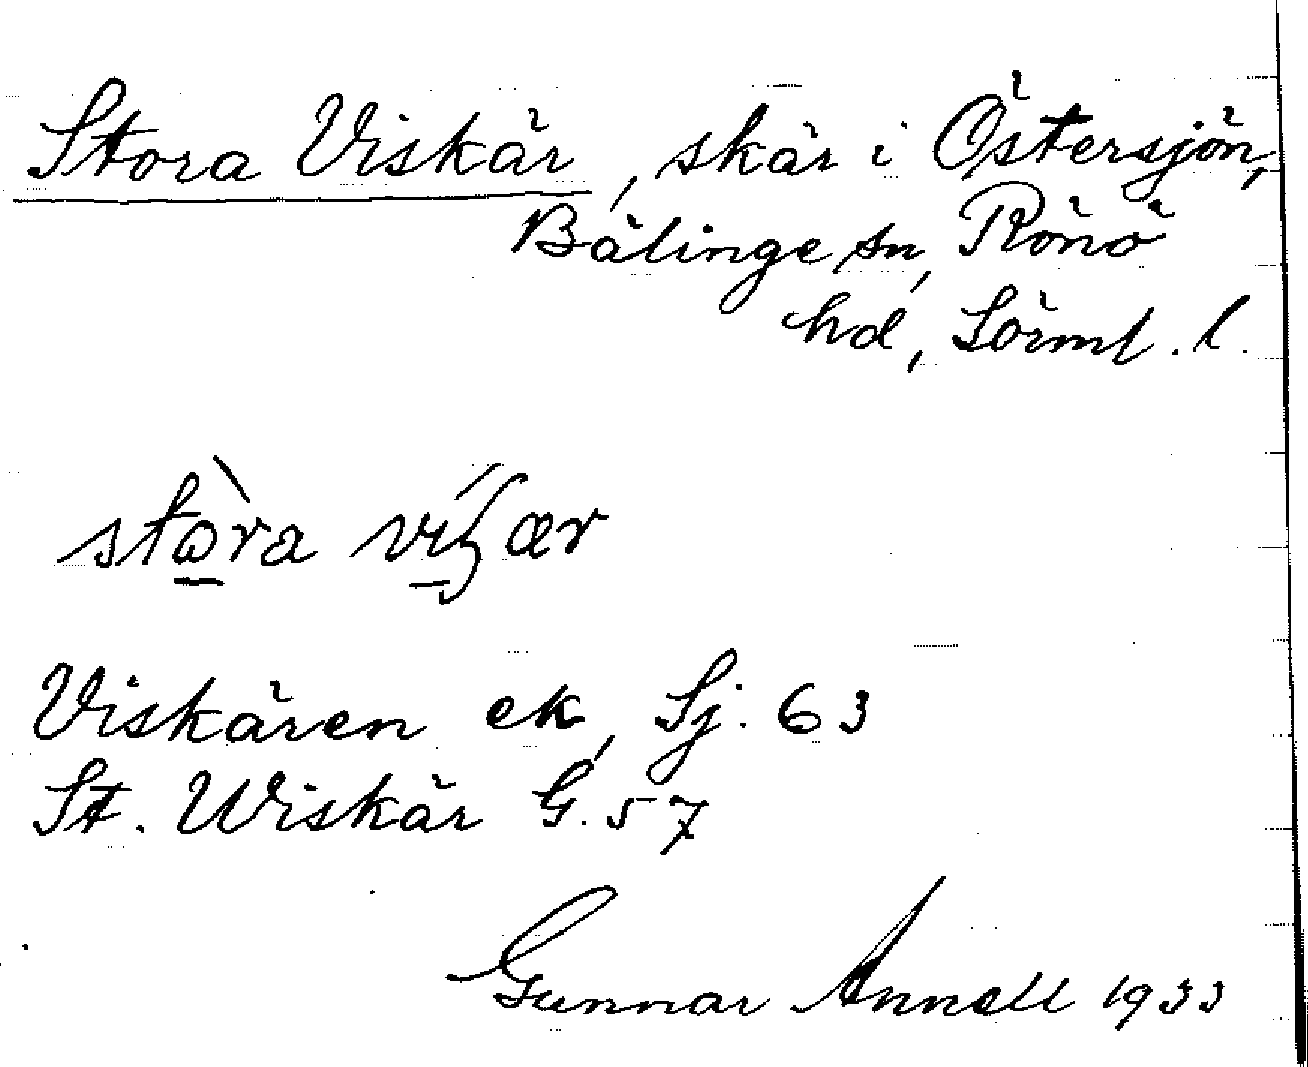 Stora Viskär, skär i Östersjön,
Bälinge sn, Rönö
hd, Sörml. l.
stòra víʃær
Viskären ek, Sj. 63
St. Wiskär G. 57
Gunnar Annell 1933